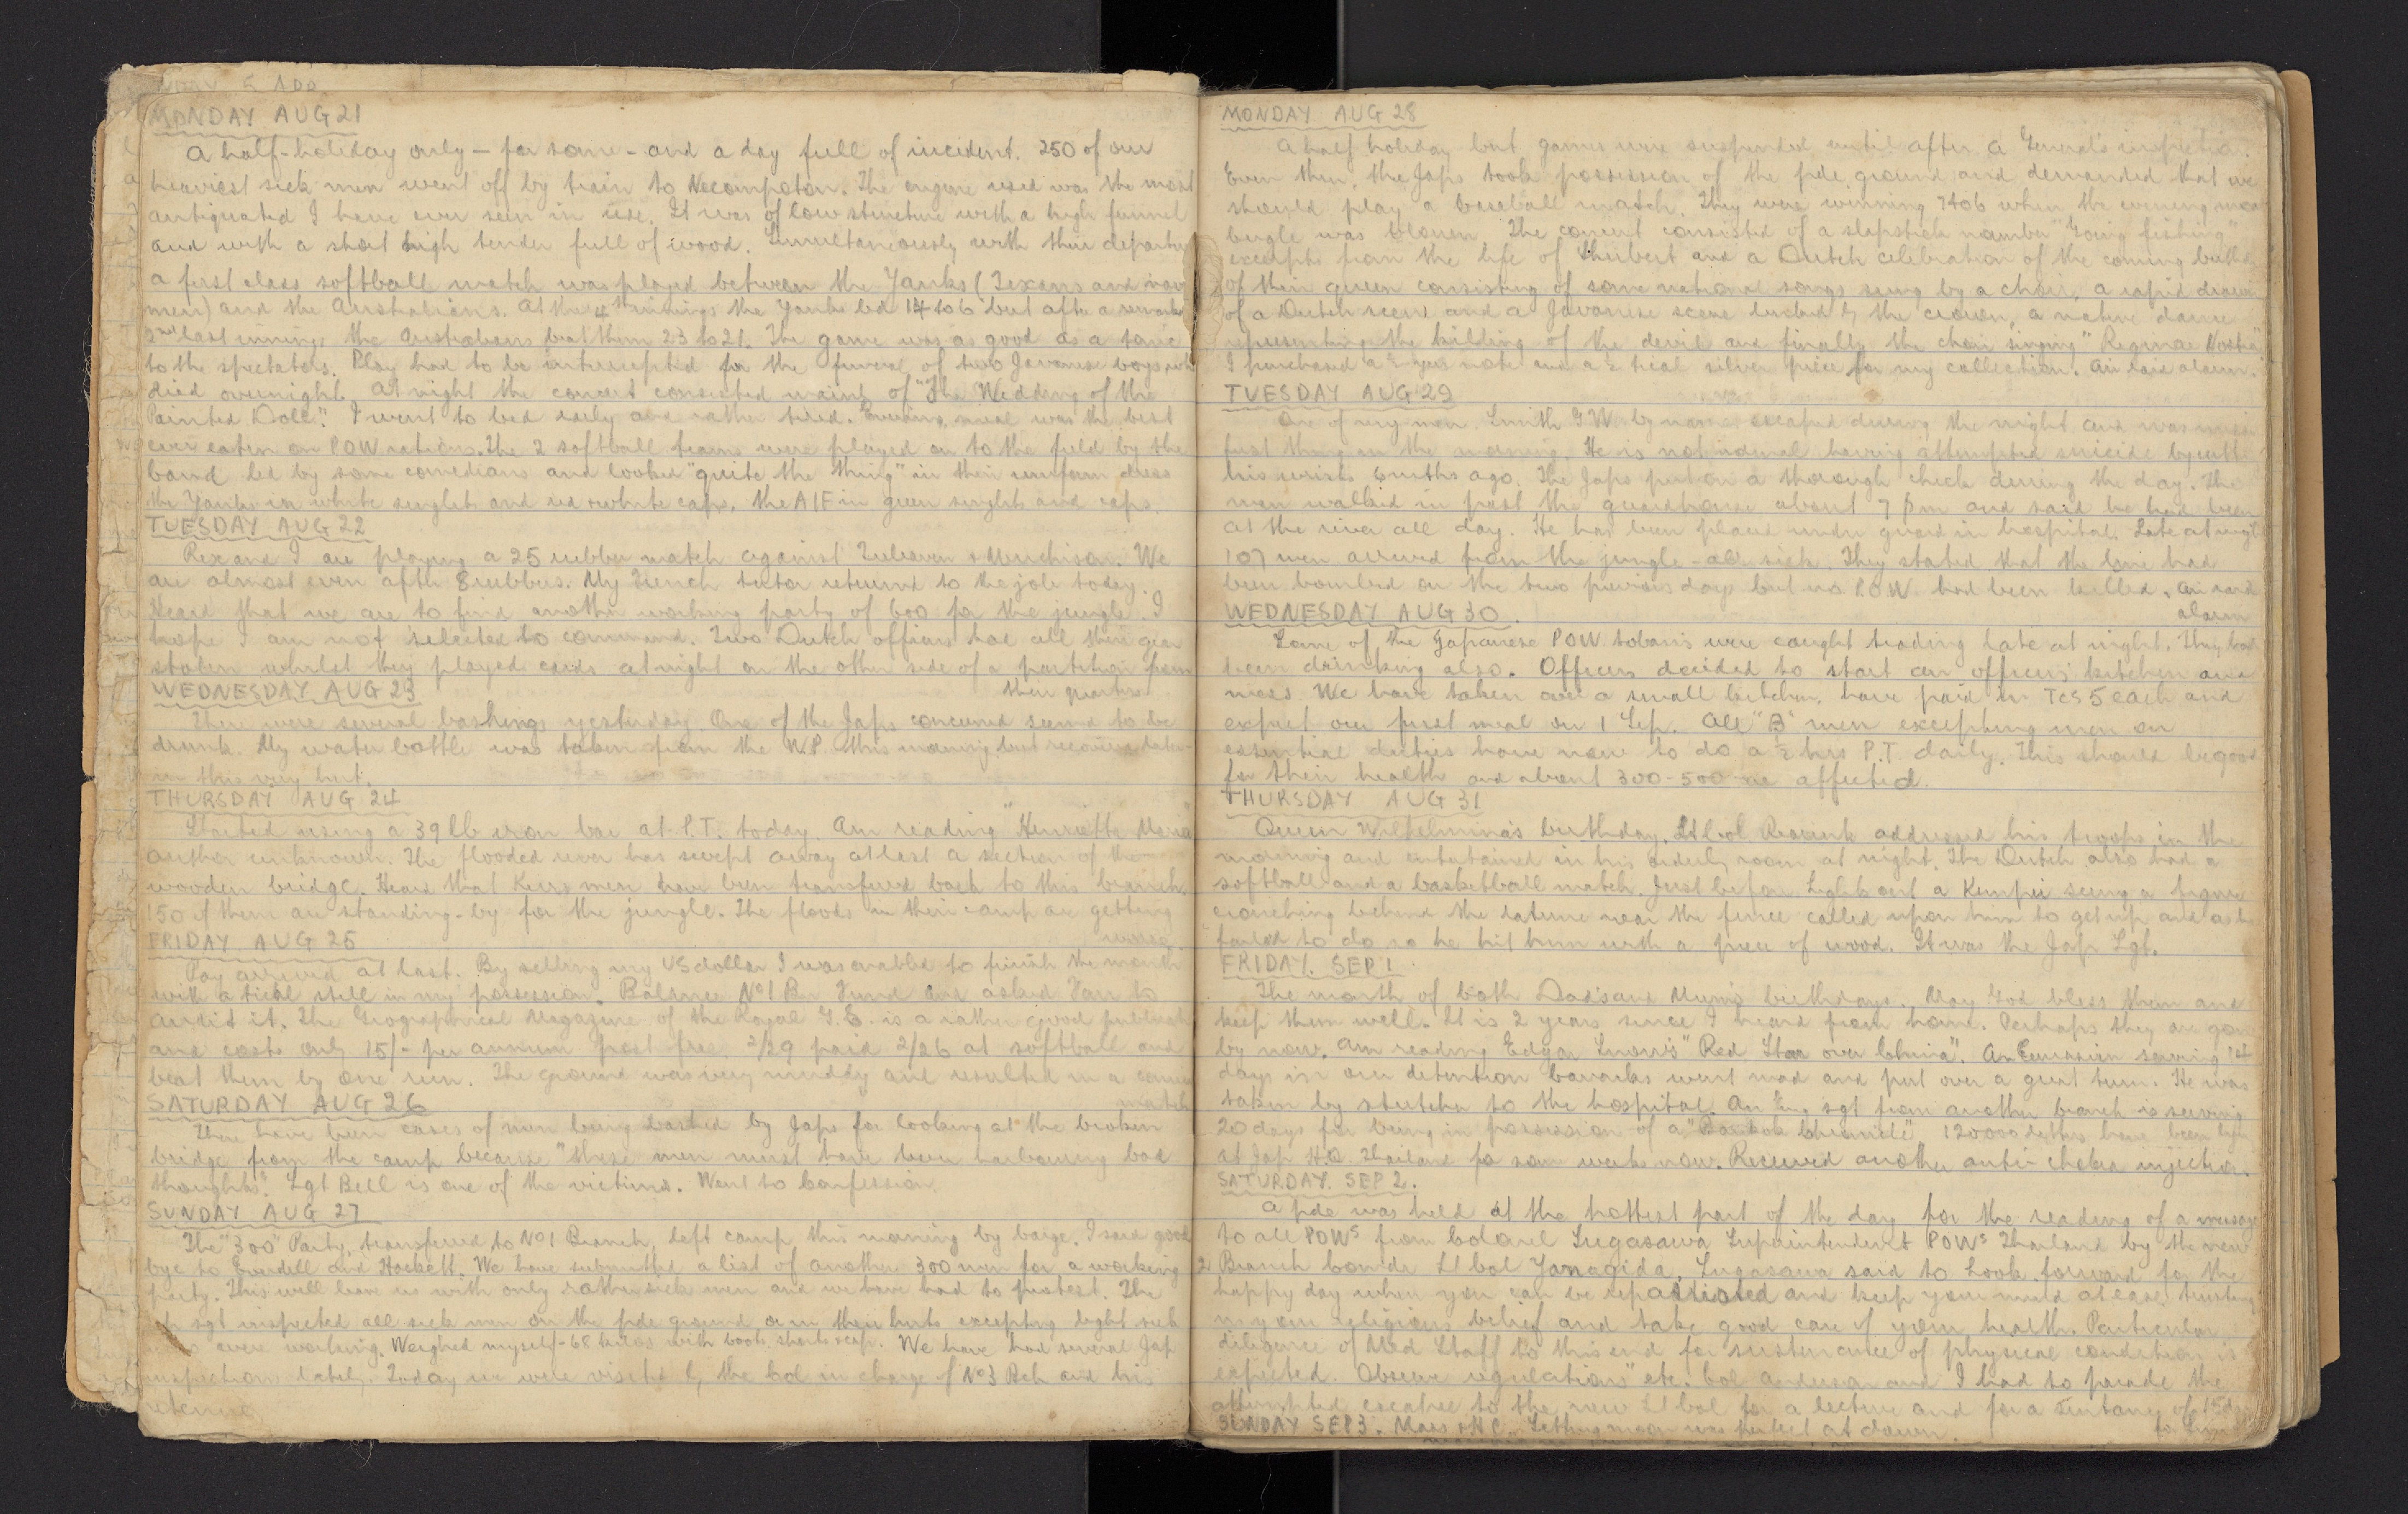 MONDAY AUG 21
A half-holiday only - for some - and a day full of incident. 250 of our
heaviest sick men went off by train to Necompaton. The engine used was the most
antiquated I have ever seen in use. It was of low structure with a high funnel
and with a short high tender full of wood. Simultaneously with their departure
a first class softball match was played between the Yanks (Texans and navy
men) and the Australians. At the 4th innings the Yanks led 14 to 6 but after a
2nd last innings the Australians beat them 23 to 21. The game was as good as a tonic
to the spectators. Play had to be interrupted for the funeral of two Javanese boys who
died overnight. At night the concert consisted mainly of "The Wedding of the
Painted Doll". I went to bed early and rather tired. Evening meal was the best
ever eaten on POW rations. The 2 softball teams were played on to the field by the
band led by some comedians and looked "quite the thing" in their uniform dress
the Yanks in white singlets and red & white caps, the AIF in green singlets and caps.
TUESDAY AUG 22
Rex and I are playing a 25 rubber match against & Murchison. We
are almost even after 8 rubbers. My French tutor returns to the job today.
Heard that we are to find another working party of 600 for the jungle. I
hope I am not selected to command. Two Dutch officers had all their gear
stolen whilst they played cards at night on the other side of a partition from
their quarters.
WEDNESDAY AUG 23
There were several bashings yesterday. One of the Japs concerned seemed to be
drunk. My water bottle was taken from the W.P. this morning but recovered later
in this very hut.
THURSDAY AUG 24
Started using a 39 lb iron bar at P.T. today. Am reading "Henrietta Maria"
author unknown. The flooded river has swept away at last a section of the
wooden bridge. Heard that Kerrs men have been transferred back to this branch.
150 of them are standing-by for the jungle. The floods in their camp are getting
worse.
FRIDAY AUG 25
Pay arrived at last. By selling my US dollar I was enabled to finish the month
with a tical still in my possession. Balanced No1 Bn Fund and asked to
audit it. The Geographical Magazine of the Royal G.S. is a rather good publication
and costs only 15/- per annum post free. 2/29 2/26 at softball and
beat them by one run. The ground was very muddy and resulted in a comical
match
SATURDAY AUG 26
There have been cases of men being bashed by Japs for looking at the broken
bridge from the camp because "these men must have been harbouring bad
thoughts". Sgt Bell is one of the victims. Went to Confession.
SUNDAY AUG 27
The "300" Party, transferred to No1 Branch, left camp this morning by barge. I said good
bye to and Hackett. We have submitted a list of another 300 men for a working
party. This will leave us with only rather sick men and we have had to protest. The
Jap sgt inspected all sick men on the pde ground or in their huts excepting light sick
who were working. Weighed myself - 68 kilos with boots shorts & cap. We have had several Jap
inspections lately. Today we were visited by the Col in charge of No3 Bch and his
retinue.
MONDAY AUG 28
A half holiday but games were suspended until after a General's inspection.
Even then, the Japs took possession of the pde ground and demanded that we
should play a baseball match. They were winning 7 to 6 when the evening meal
bugle was blown. The concert consisted of a slapstick number "Going fishing"
excerpts from the life of Shubert and a Dutch celebration of the coming birthday
of their queen consisting of some national songs sung by a choir, a rapid drawing
of a Dutch scene and a Javanese scene linked by the crown, a native dance
representing the killing of the devil and finally the choir singing
I purchased a ½ yen note and a ½ tical silver piece for my collection. Air raid alarm.
TUESDAY AUG 29
One of my men, Smith G.W. by name escaped during the night and was missed
first thing in the morning. He is not normal having attempted suicide by cutting
his wrists 6 mths ago. The Japs put on a thorough check during the day. The
man walked in past the guardhouse about 7 pm and said he had been
at the river all day. He has been placed under guard in hospital. Late at night
107 men arrived from the jungle - all sick. They stated that the line had
been bombed on the two previous days but no P.O.W. had been killed. Air raid
alarm
WEDNESDAY AUG 30.
Some of the Japanese POW tobans were caught trading late at night. They had
been drinking also. Officers decided to start an officers' kitchen and
mess. We have taken over a small kitchen, have paid in Tcs 5 each and
expect our first meal on 1 Sep. All "B" men excepting men on
essential duties have now to do a ½ hrs P.T. daily. This should be good
for their health and about 300-500 are affected.
THURSDAY AUG 31
Queen Wilhelmina's birthday. Lt Col addressed his troops in the
morning and entertained in his orderly room at night. The Dutch also had a
softball and a basketball match. Just before Lights out a Kempei seeing a figure
crouching behind the latrine near the fence called upon him to get up and as he
failed to do so he hit him with a piece of wood. It was the Jap Sgt.
FRIDAY. SEP 1.
The month of both Dad's and Mum's birthdays. May God bless them and
keep them well. It is 2 years since I heard from home. Perhaps they are gone
by now. Am reading Edgar Snow's "Red Star over China". An Eurasian serving
days in our detention barracks went mad and put over a great turn. He was
taken by stretcher to the hospital. An Eng. sgt from another branch is serving
20 days for being in possession of a "Bankok Chronicle". 120000 letters have been
at Jap H.Q. Thailand for some weeks now. Received another anti-cholera injection.
SATURDAY. SEP 2.
A pde was held at the hottest part of the day for the reading of a message
to all POWs from Colonel Sugasawa Superintendent POWs Thailand by the new
2 Branch Comdr Lt Col Yanagida. Sugasawa said to "Look forward for the
happy day when you can be repatriated and keep your mind at ease, trusting
in your religious belief and take good care of your health. Particular
diligence of Med Staff to this end for sustenance of physical condition is
expected. Observe regulations" etc. Col Anderson and I had to parade the
attempted escapee to the new Lt Col for a lecture and for a sentence of 15 days
for
SUNDAY SEP 3. Mass & H.C. Setting moon was perfect at dawn.